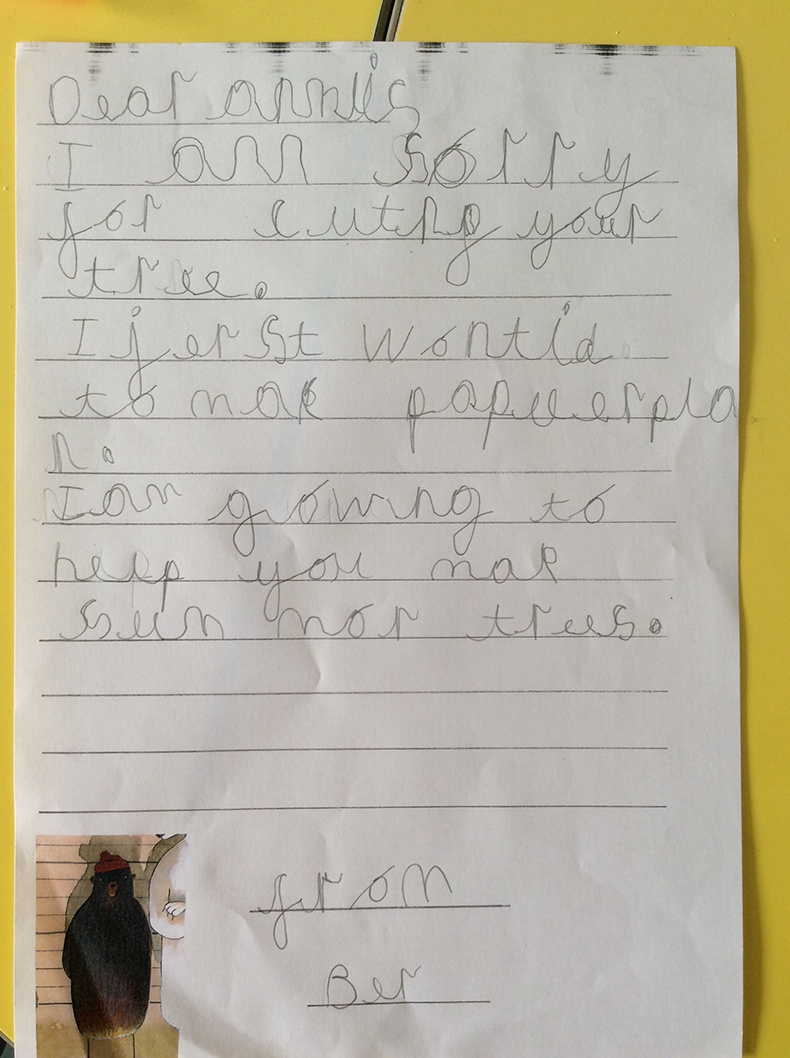 Dear annils
I am sorry
for cuting your
tree.
I jerst wontid
to mak papuerpla
n.
I am growing to
help you mak
sum mor trees.
from
Ber